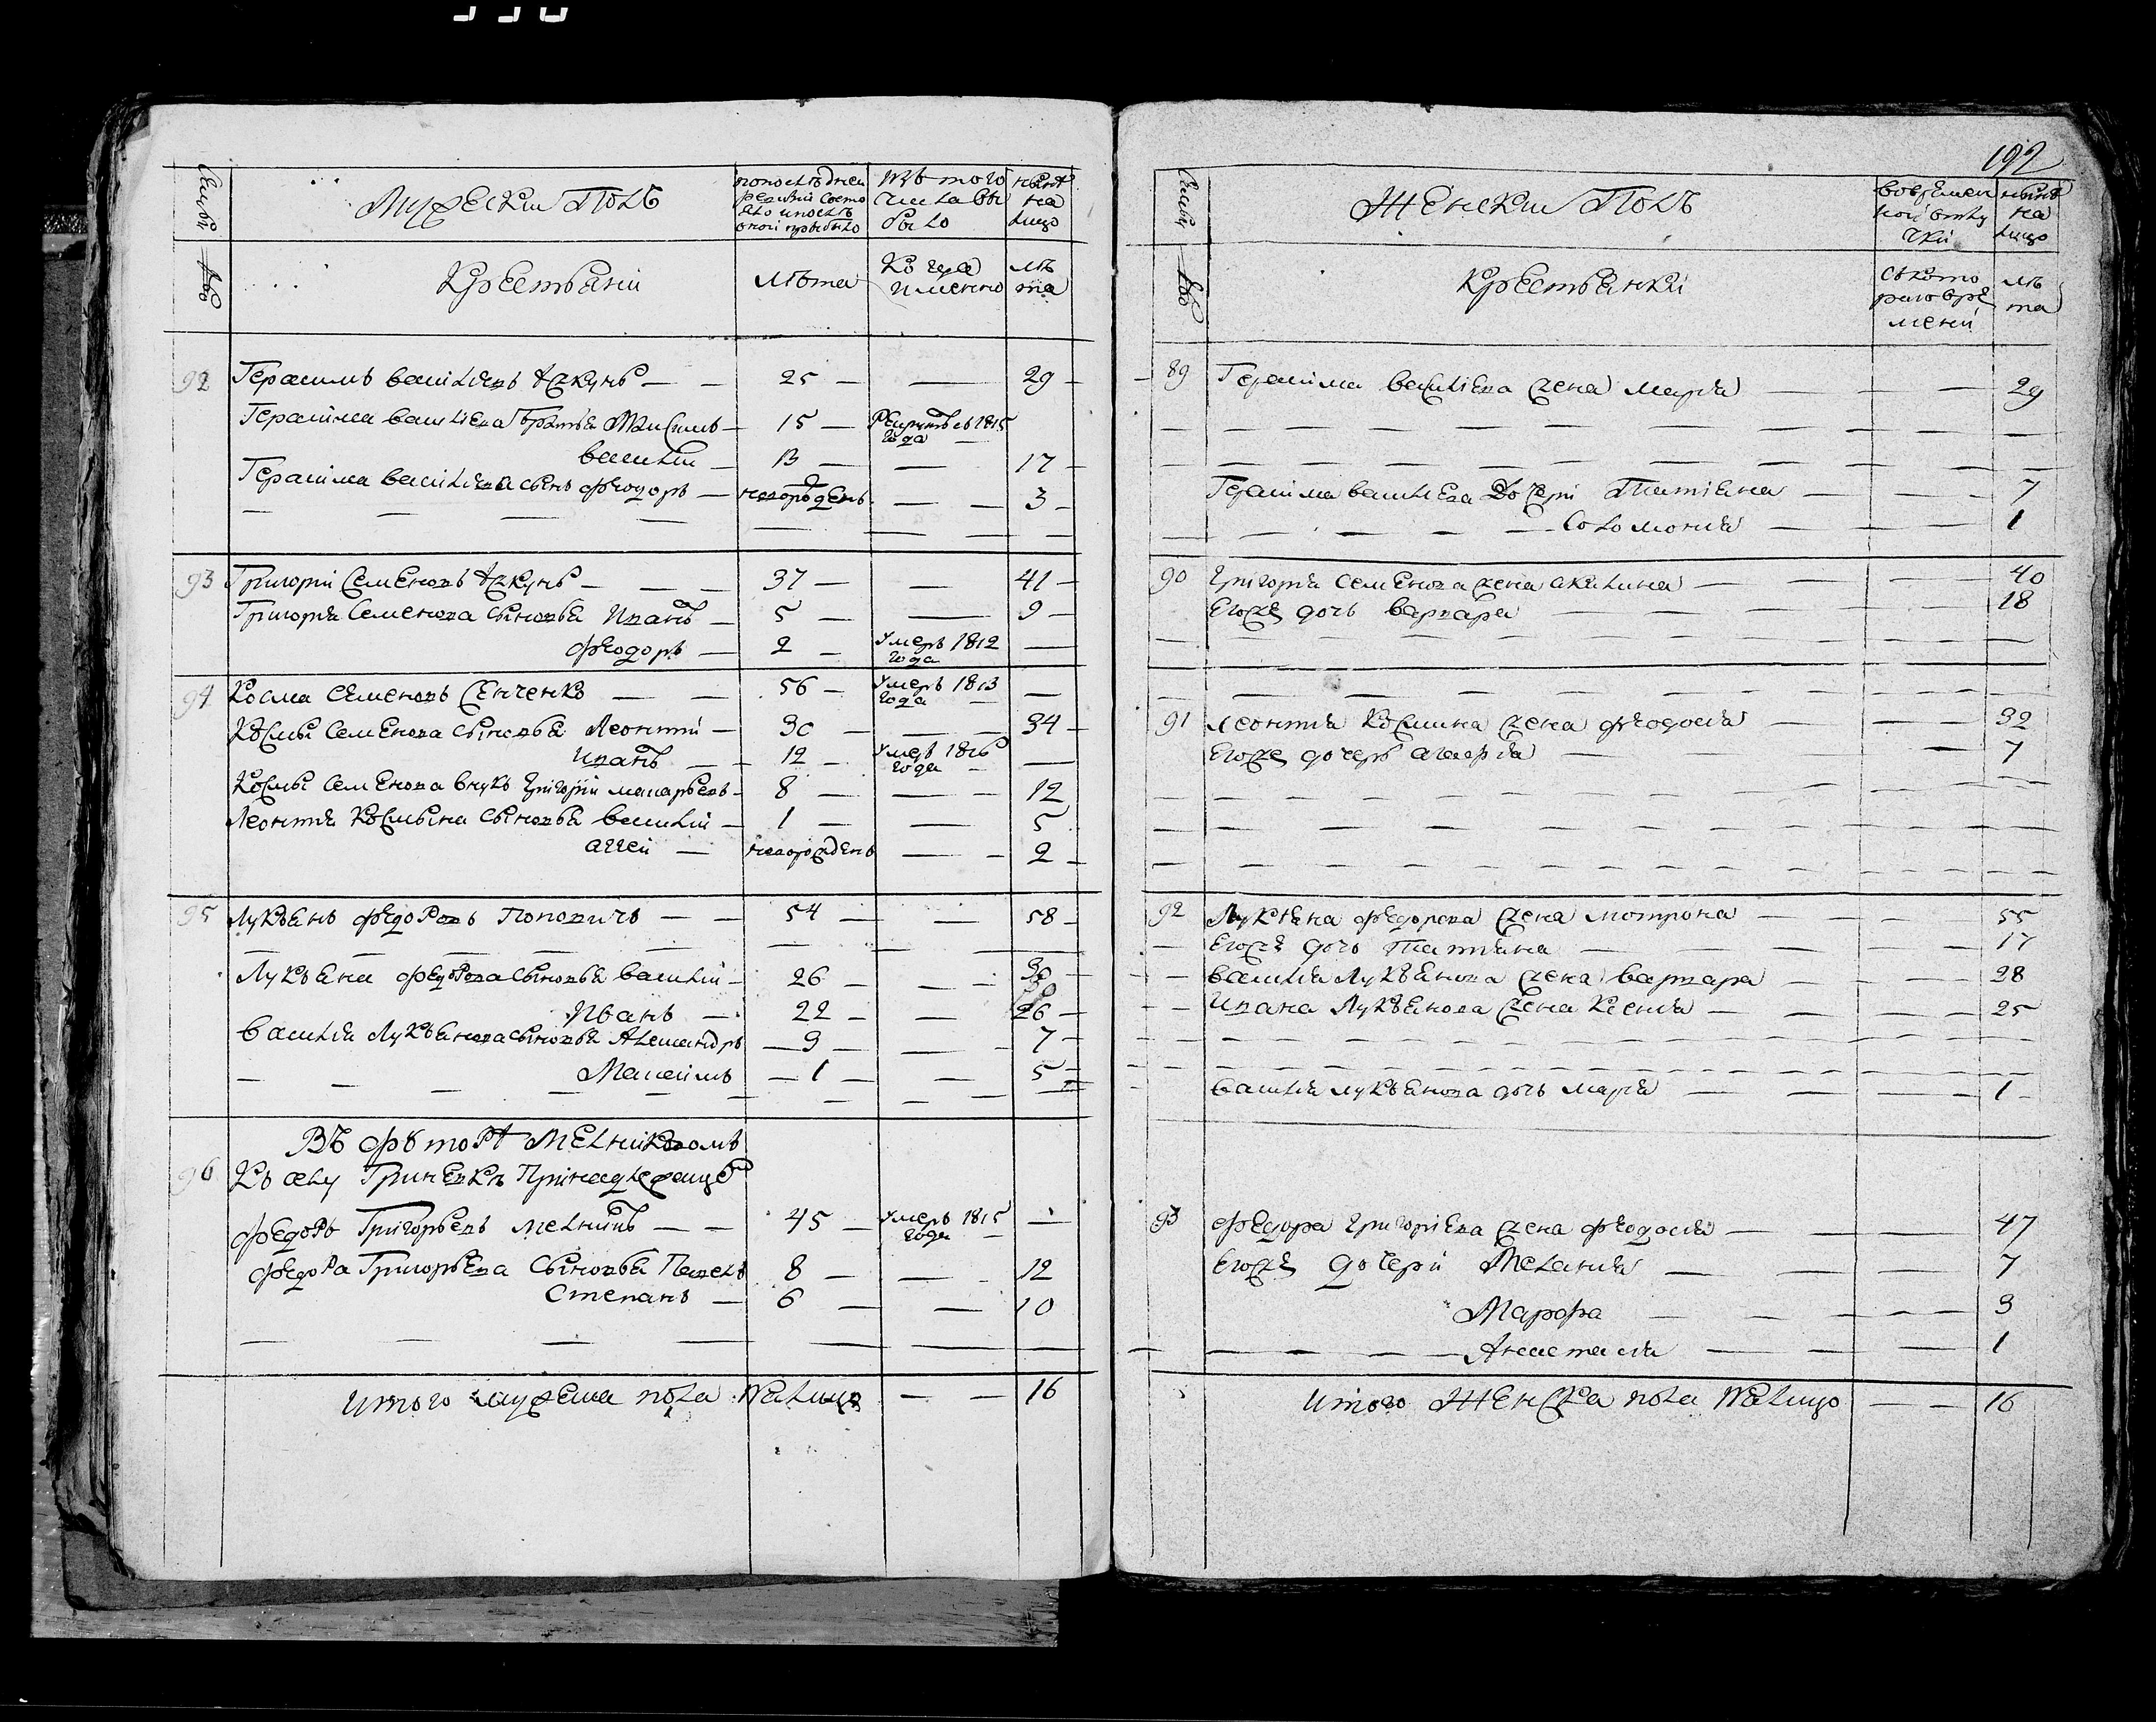 Мужескии Полъ
попоследнеи
ревизіи состо
яло и послѣ
оной прибыло
изъ того
числа вы
было
нынѣ
на
лицо
Крестьяніи
лѣта
Когда
именно
лѣ
та
92 Герасимъ васильевъ — — 25 — — 29 —
Герасима василіева братья Максимъ — 15 — Рекрутъ съ 1815
года
василіи — 13 — — 17 —
Герасима василіева сынъ феодоръ — новорожденъ — — 3 —
93 Григоріи Семеновъ — — 37 — — 41 —
Григорія Семенова сыновья Иванъ — 5 — — 9 —
феодоръ — 2 — Умеръ 1812 —
года
94 Косма Семеновъ Сенченко — — 56 — Умеръ 1813 —
года
Космы Семенова сыновья Леонтіи — 30 — — 34 —
Иванъ — 12 — Умеръ 1816 —
года
Космы Семенова внукъ Григоріи макарьевъ — 8 — — 12
Леонтія Космина сыновья василіи — 1 — — 5
аггеи — новорожденъ — — 2 —
95 Лукьянъ федоровъ Поповичъ — — 54 — — 58 —
Лукьяна федорова сыновья василіи — 26 — — 30 —
Иванъ — 22 — — 26 —
василія Лукьянова сыновья Александръ — 3 — — 7 —
Максимъ — 1 — — 5 —
Въ футорѣ Мелниковомъ
96 Къ селу Гриневкѣ Принадлежаще
федоръ Григорьевъ мелникъ — — 45 — Умеръ 1815 —
года
федора Григорьева сыновья Павелъ 8 — — 12
Степанъ — 6 — — 10
итого мужеска пола Налицо — — 16
192
Женскии Полъ
вовремен
ной отлу
чки
нынѣ
на
лицо
Крестьянки
съ кото
раго вре
мени
лѣ
та
89 Герасима василіева жена марія — — 29
Герасима василіева дочери Татіяна — — 7
Соломонія — — 1
90 Григорія семенова жена акилина — — 40
Егоже дочь варвара — — 18
91 леонтія Космина жена феодосія — — 32
Егоже дочерь агафія — — 7
92 Лукьяна федорова жена мотрона — — 55
Егоже дочь татіяна — — 17
василія Лукьянова жена варвара — — 28
Ивана Лукьянова жена Ксенія — — 25
василія лукьянова дочь марія — — 1
93 федора григоріева жена феодосія — — 47
Егоже дочери Меланія — — 7
Марфа — — 3
Анастасія — — 1
итого Женска пола Налицо — — 16